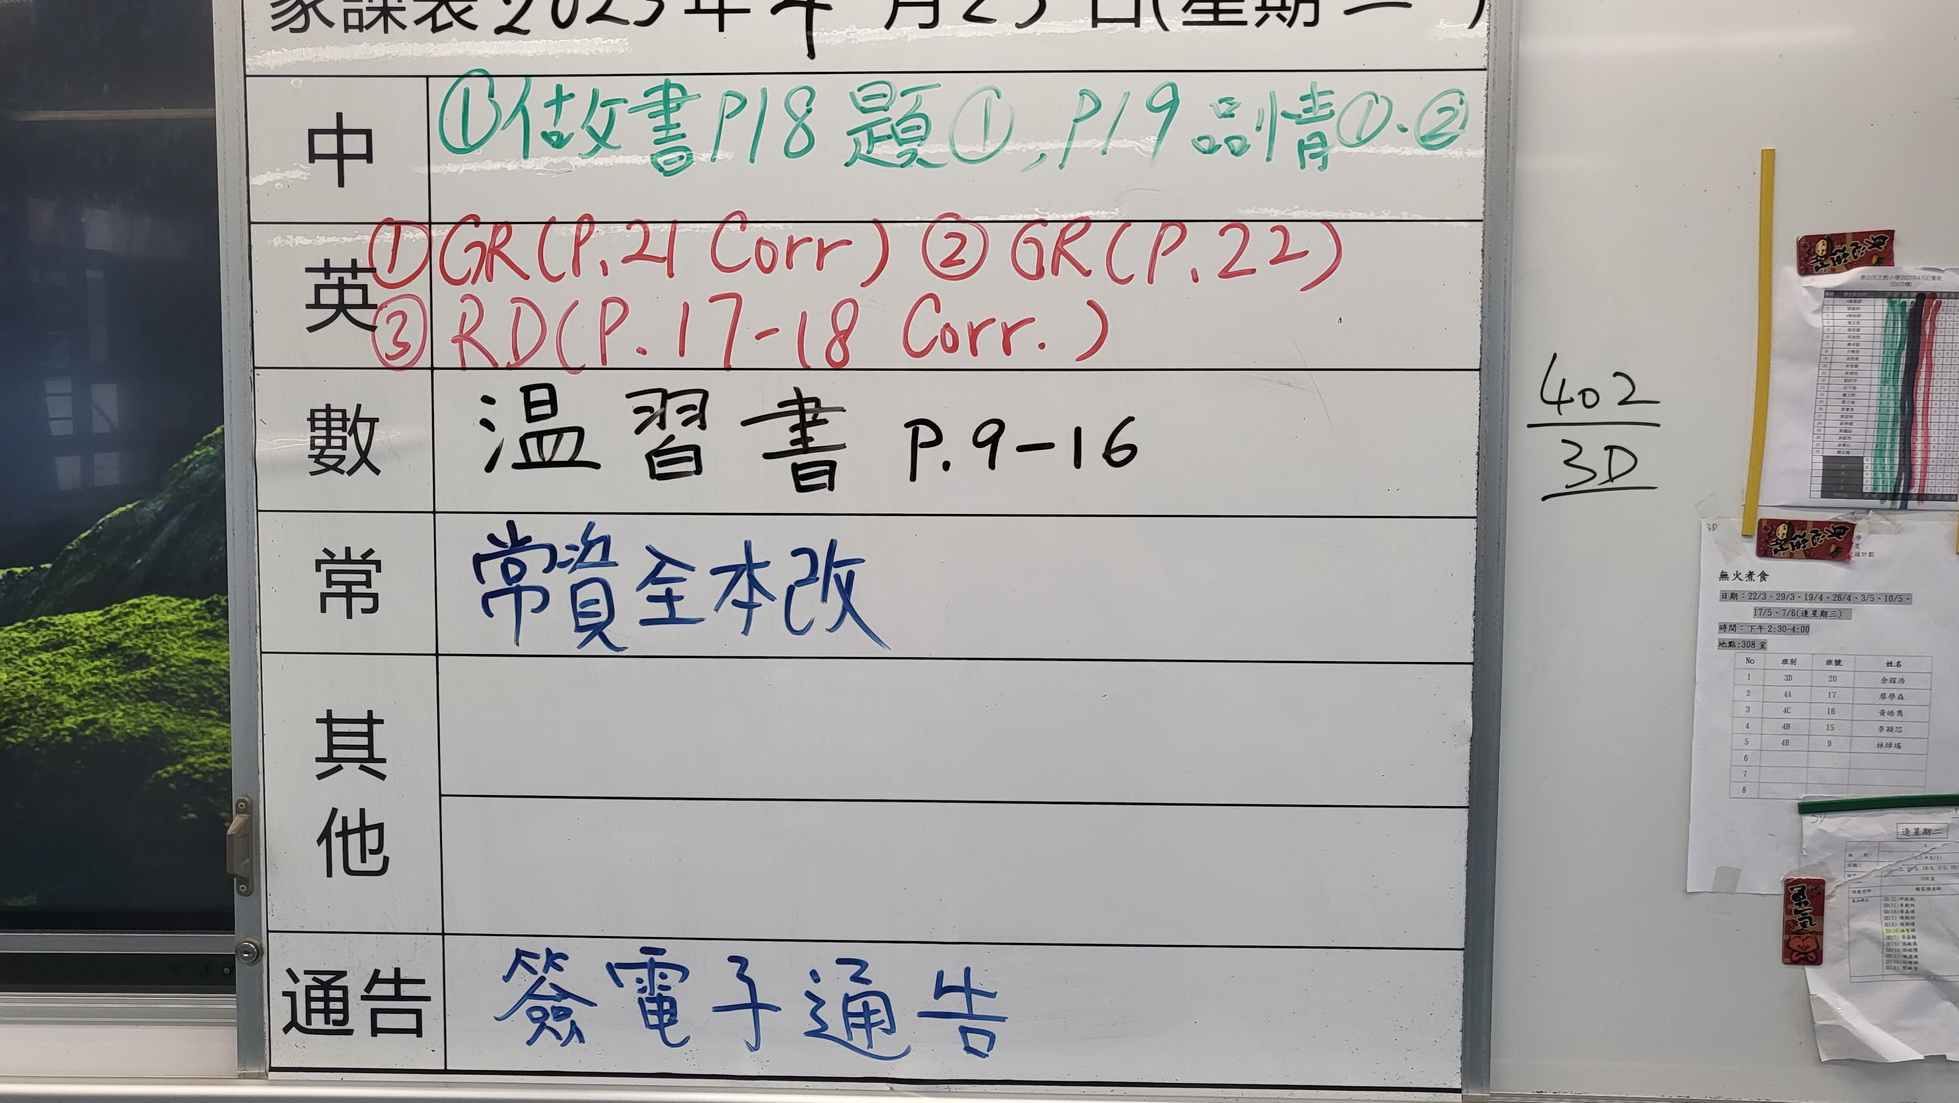 家課表2023年4月25日(星期二)
中
①做書P18題①,P19品情①.②
英
①GR(P.21 Corr) ②GR(P.22)
③RD(P.17-18 Corr.)
數
温習書 P.9-16
常
常資全本改
其他
通告
簽電子通告
402
3D
無火煮食
日期：22/3、29/3、19/4、26/4、3/5、10/5、
17/5、7/6(逢星期三)
時間：下午2:30-4:00
地點:308室
No 班別 班號 姓名
1 3D 20
2 4A 17
3 4C 16
4 4B 15
5 4B 9
6
7
8
逢星期二